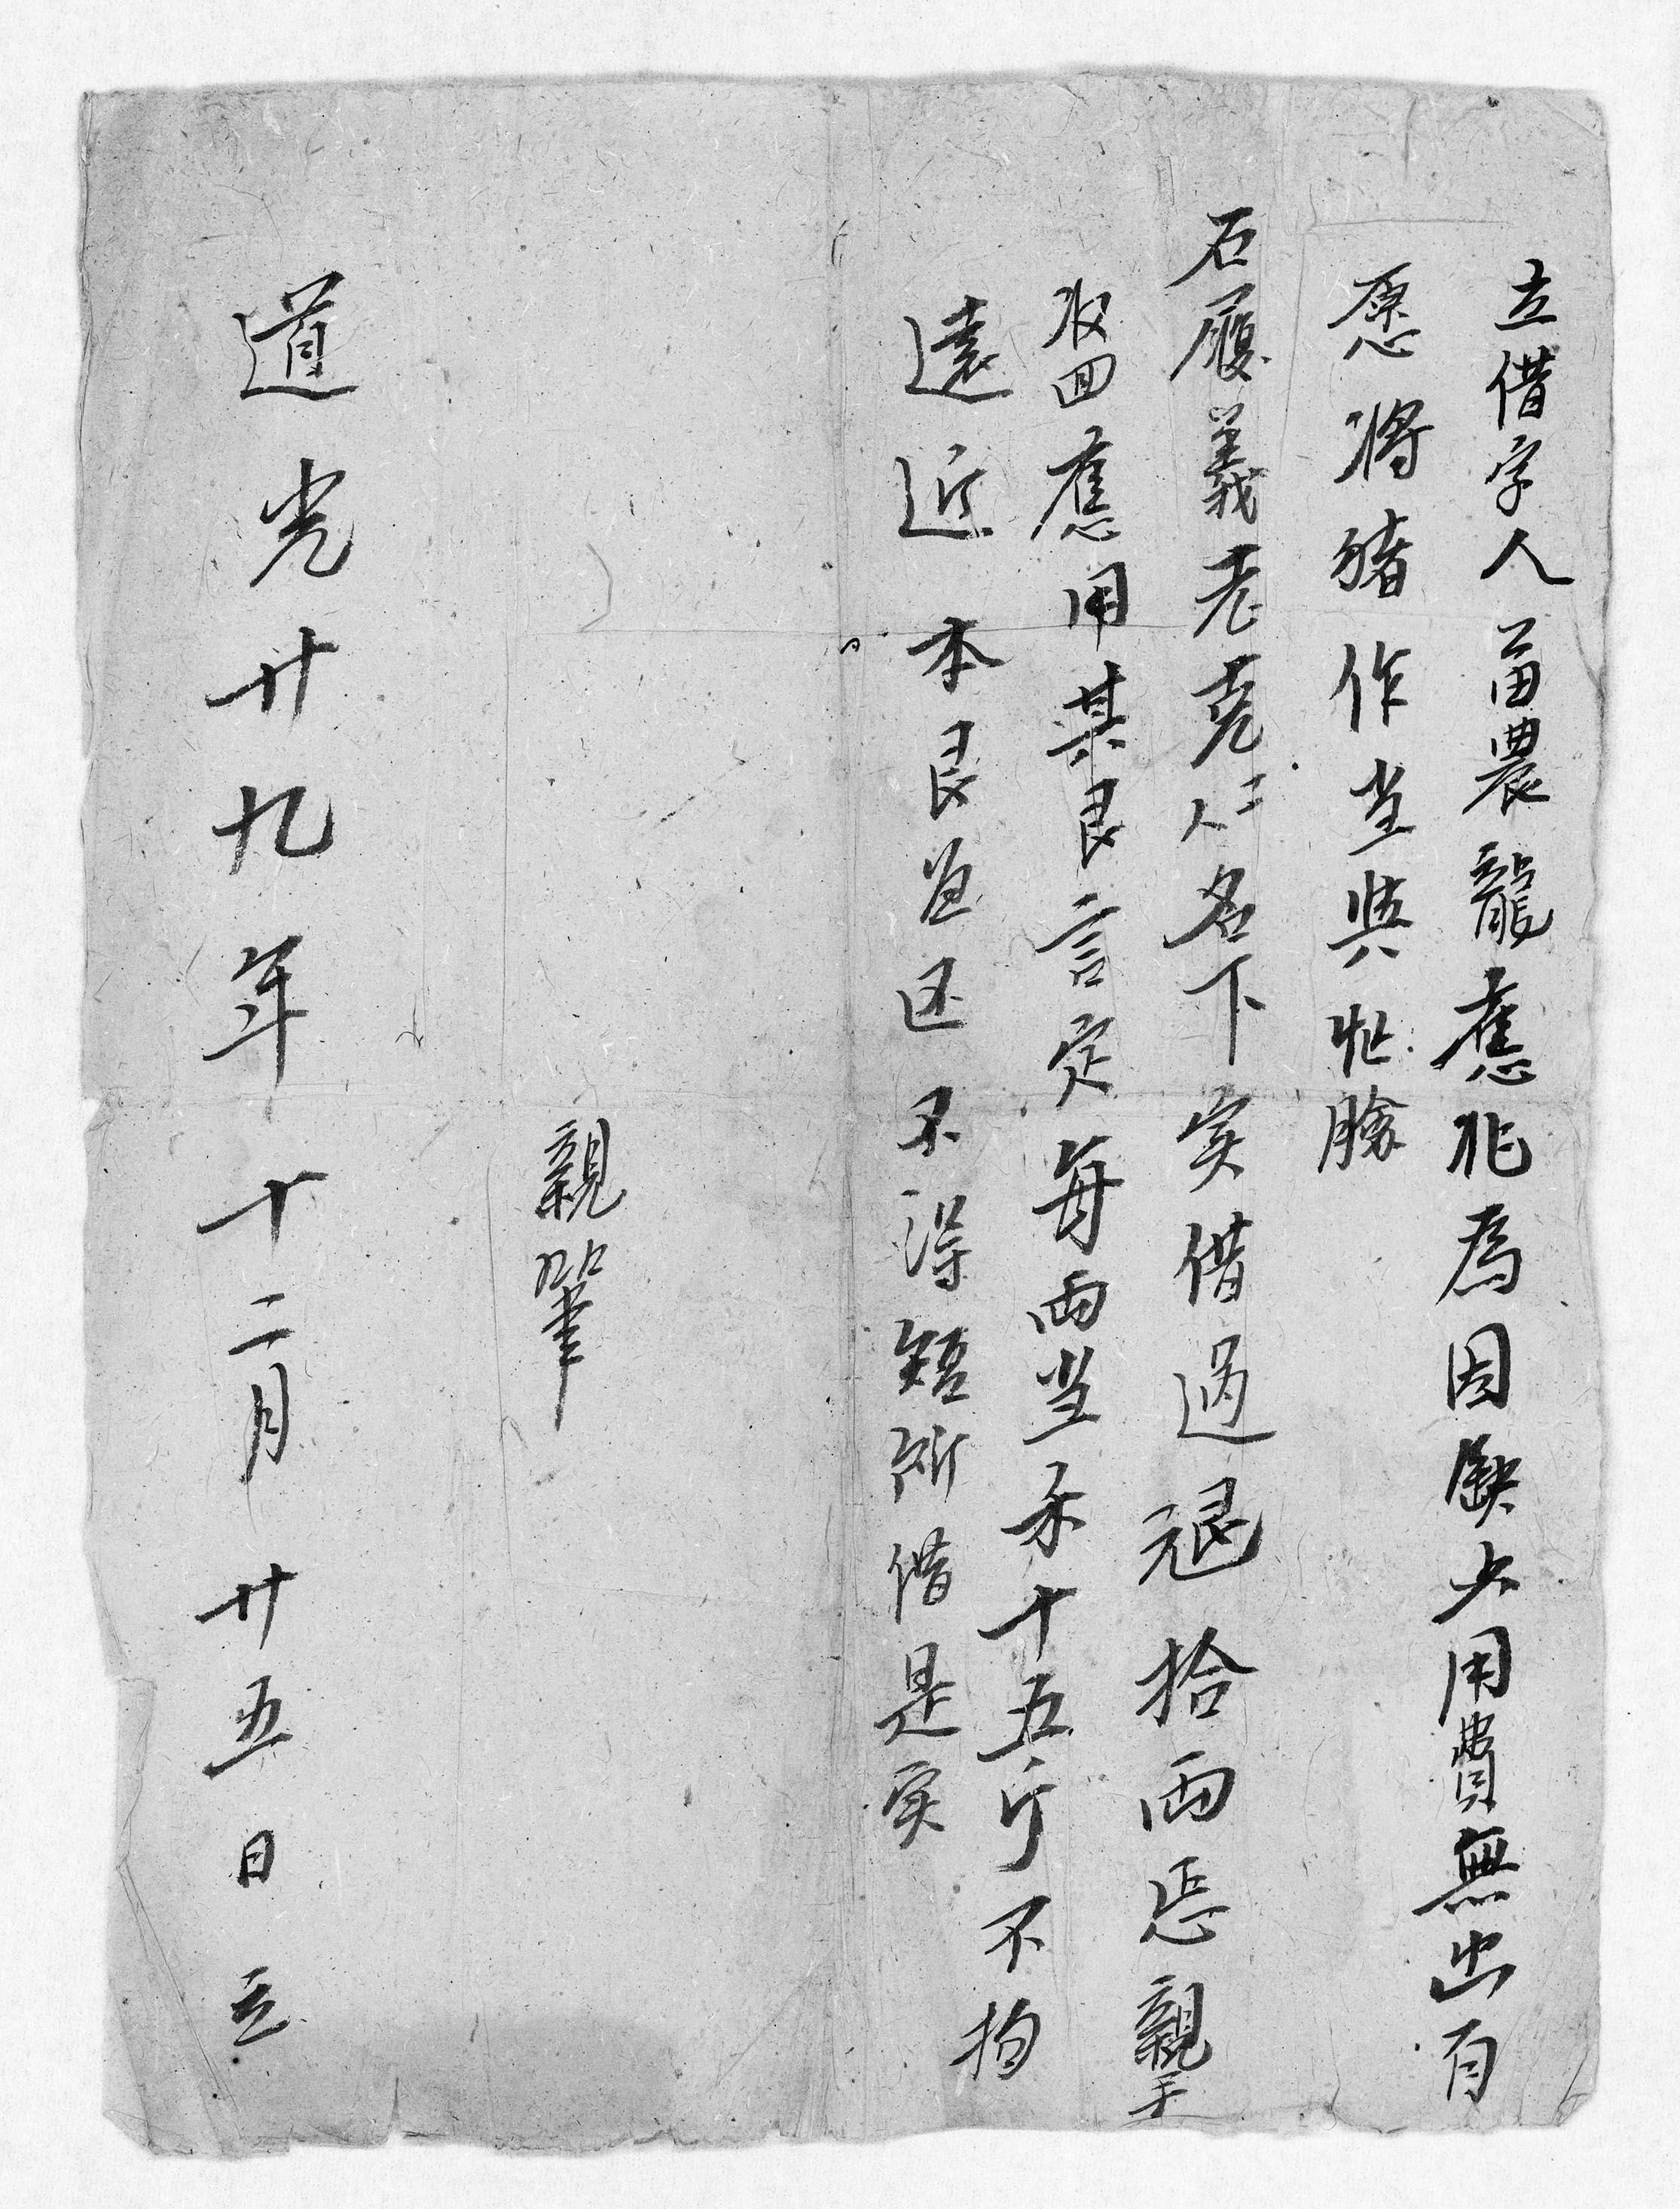 立借字人苗農龍應兆爲因缺少用費無出自
愿將豬作当與
石履義老堯仁名下实借過艮拾両恁親手
收回應用其艮言定每両当禾十五斤不拘
遠近本艮迫还不得短所借是实
親筆
道光廿九年十二月廿五日立